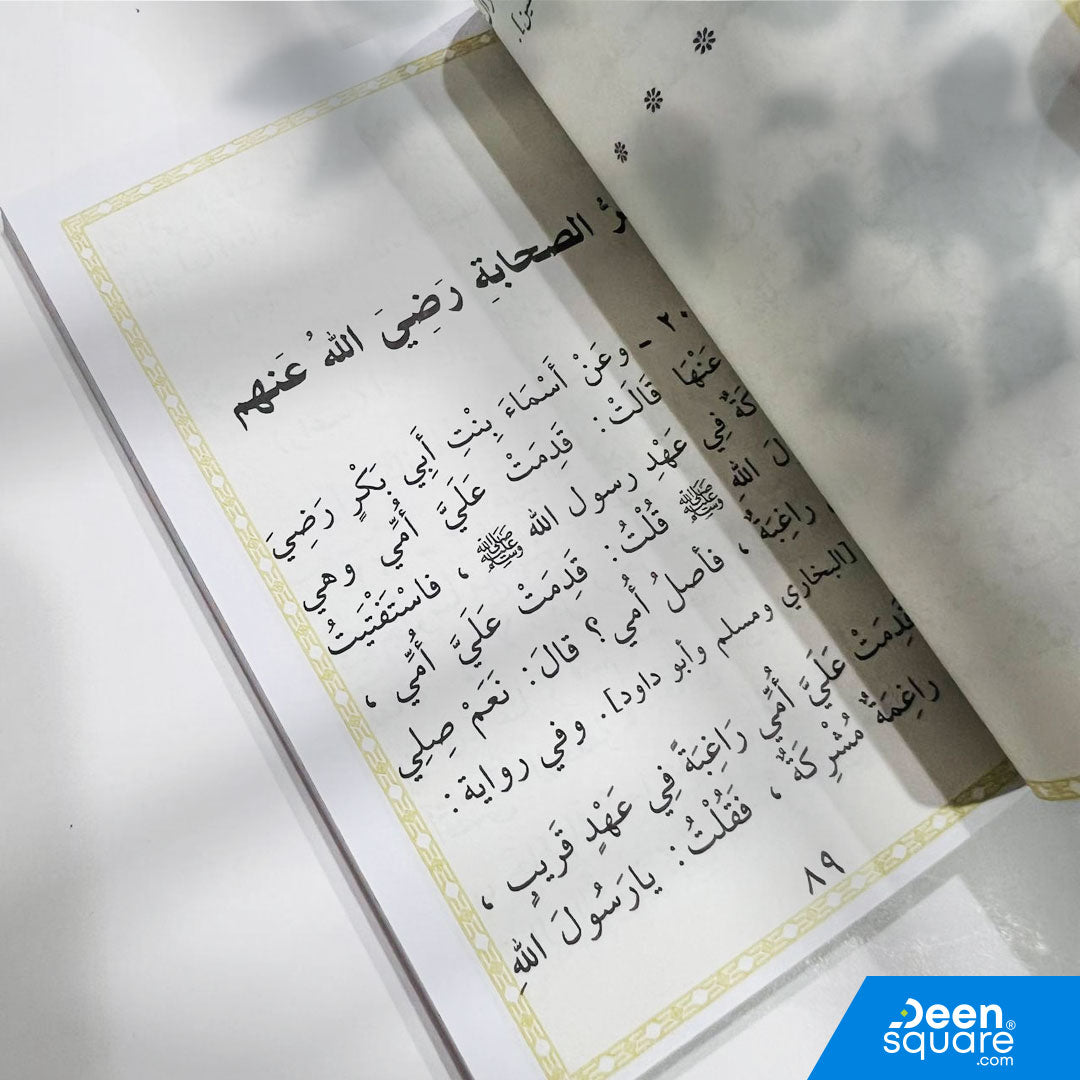 الصحابةِ رَضِيَ اللهُ عَنهم
٢٠ - وعَنْ أَسْمَاءَ بِنْتِ أَبِي بَكْرٍ رَضِيَ
عَنْهَا قَالَتْ: قَدِمَتْ عَلَيَّ أُمِّي وهي
فِي عَهْدِ رسول الله ﷺ ، فاسْتَفْتَيتُ
اللهِ ﷺ قُلْتُ: قَدِمَتْ عَلَيَّ أُمِّي ،
رَاغِبَةٌ ، فأصلُ أُمي؟ قالَ: نَعَمْ صِلِي
[البخاري ومسلم وأبو داود]. وفي رواية:
قَدِمَتْ عَلَيَّ أُمِّي رَاغِبَةً فِي عَهْدٍ قَرَيبٍ ،
راغِمَةٌ مُشْرِكَةٌ ، فَقُلْتُ: يارَسُولَ اللهِ
٨٩
Deen
square®
.com